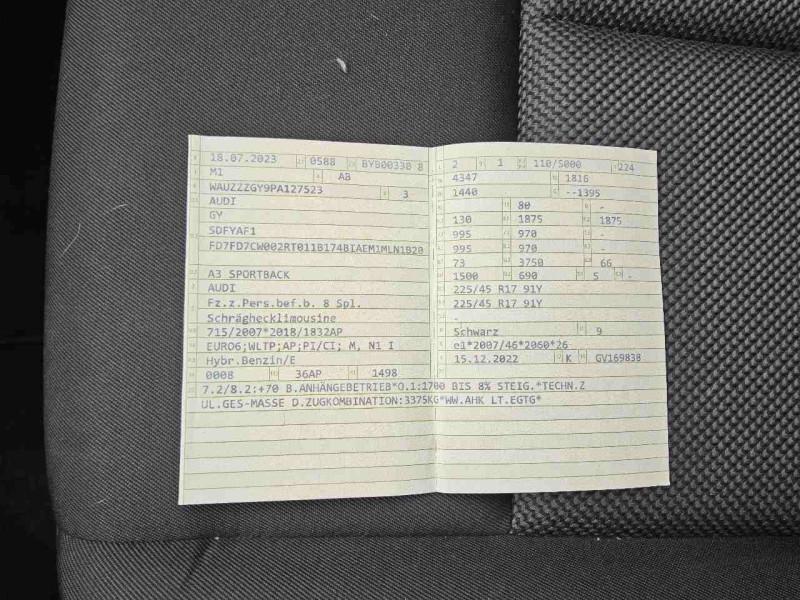 18.07.2023 0588 BYB00330 8
M1 AB
WAUZZZGY9PA127523 3
AUDI
GY
SDFYAF1
FD7FD7CW002RT011B174BIAEM1MLN1B20
A3 SPORTBACK
AUDI
Fz.z.Pers.bef.b. 8 Spl.
Schräghecklimousine
715/2007*2018/1832AP
EURO6;WLTP;AP;PI/CI; M, N1 I
Hybr.Benzin/E
0008 36AP 1498
2 1 110/5000 224
4347 1816
1440 --1395
80 -
130 1875 1875
995 970 -
995 970 -
73 3750 66
1500 690 5 -
225/45 R17 91Y
225/45 R17 91Y
-
Schwarz 9
e1*2007/46*2060*26
15.12.2022 K GV169838
7.2/8.2:+70 B.ANHÄNGEBETRIEB*O.1:1700 BIS 8% STEIG.*TECHN.Z
UL.GES-MASSE D.ZUGKOMBINATION:3375KG*WW.AHK LT.EGTG*